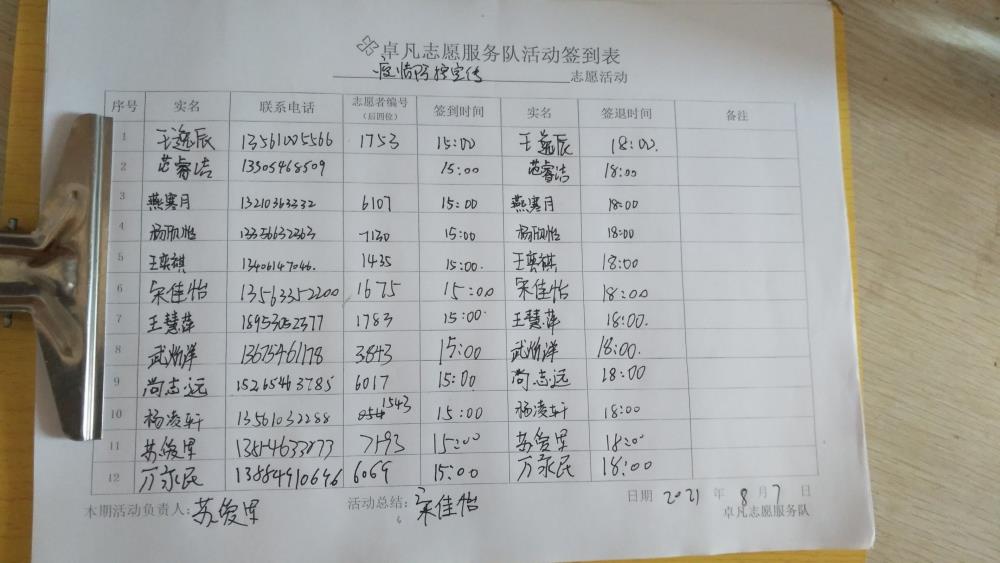 卓凡志愿服务队活动签到表
疫情防控宣传 志愿活动
序号 实名 联系电话 志愿者编号（后四位） 签到时间 实名 签退时间 备注
1 王逸辰 13561005566 1753 15:00 王逸辰 18:00.
2 范睿洁 13305468509 15:00 范睿洁 18:00
3 燕寒月 13210363332 6107 15:00 燕寒月 18:00
4 杨欣怡 13356632363 7130 15:00 杨欣怡 18:00
5 王奕祺 13406147046. 1435 15:00. 王奕祺 18:00
6 宋佳怡 13563352200 1675 15:00 宋佳怡 18:00
7 王慧萍 18953052377 1783 15:00. 王慧萍 18:00.
8 武 洋 13675461178 3843 15:00 武 洋 18:00.
9 尚志远 15265463785 6017 15:00 尚志远 18:00
10 杨凌轩 13561032288 1543 15:00 杨凌轩 18:00
11 苏俊军 7193 15:00 苏俊军 18:00
12 万永民 13884910696 6069 15:00 万永民 18:00
本期活动负责人：苏俊军 活动总结：宋佳怡 日期 2021 年 8 月 7 日
卓凡志愿服务队